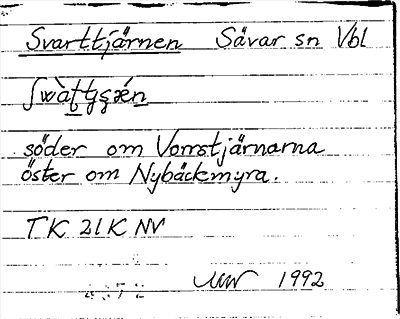 Svarttjärnen Sävar sn Vbl
söder om Vomstjärnarna
öster om Nybäckmyra.
TK 21K NV
1992